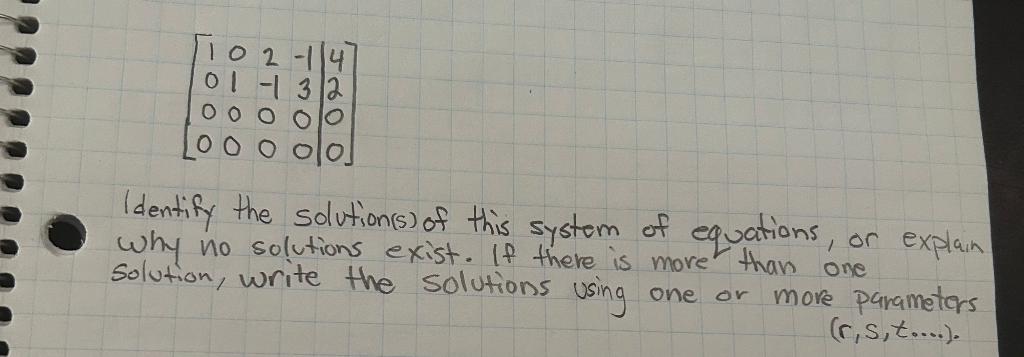 1 0 2 -1 | 4
0 1 -1 3 | 2
0 0 0 0 | 0
0 0 0 0 | 0
Identify the solution(s) of this system of equations, or explain
why no solutions exist. If there is more than one
solution, write the solutions using one or more parameters
(r,s,t....).